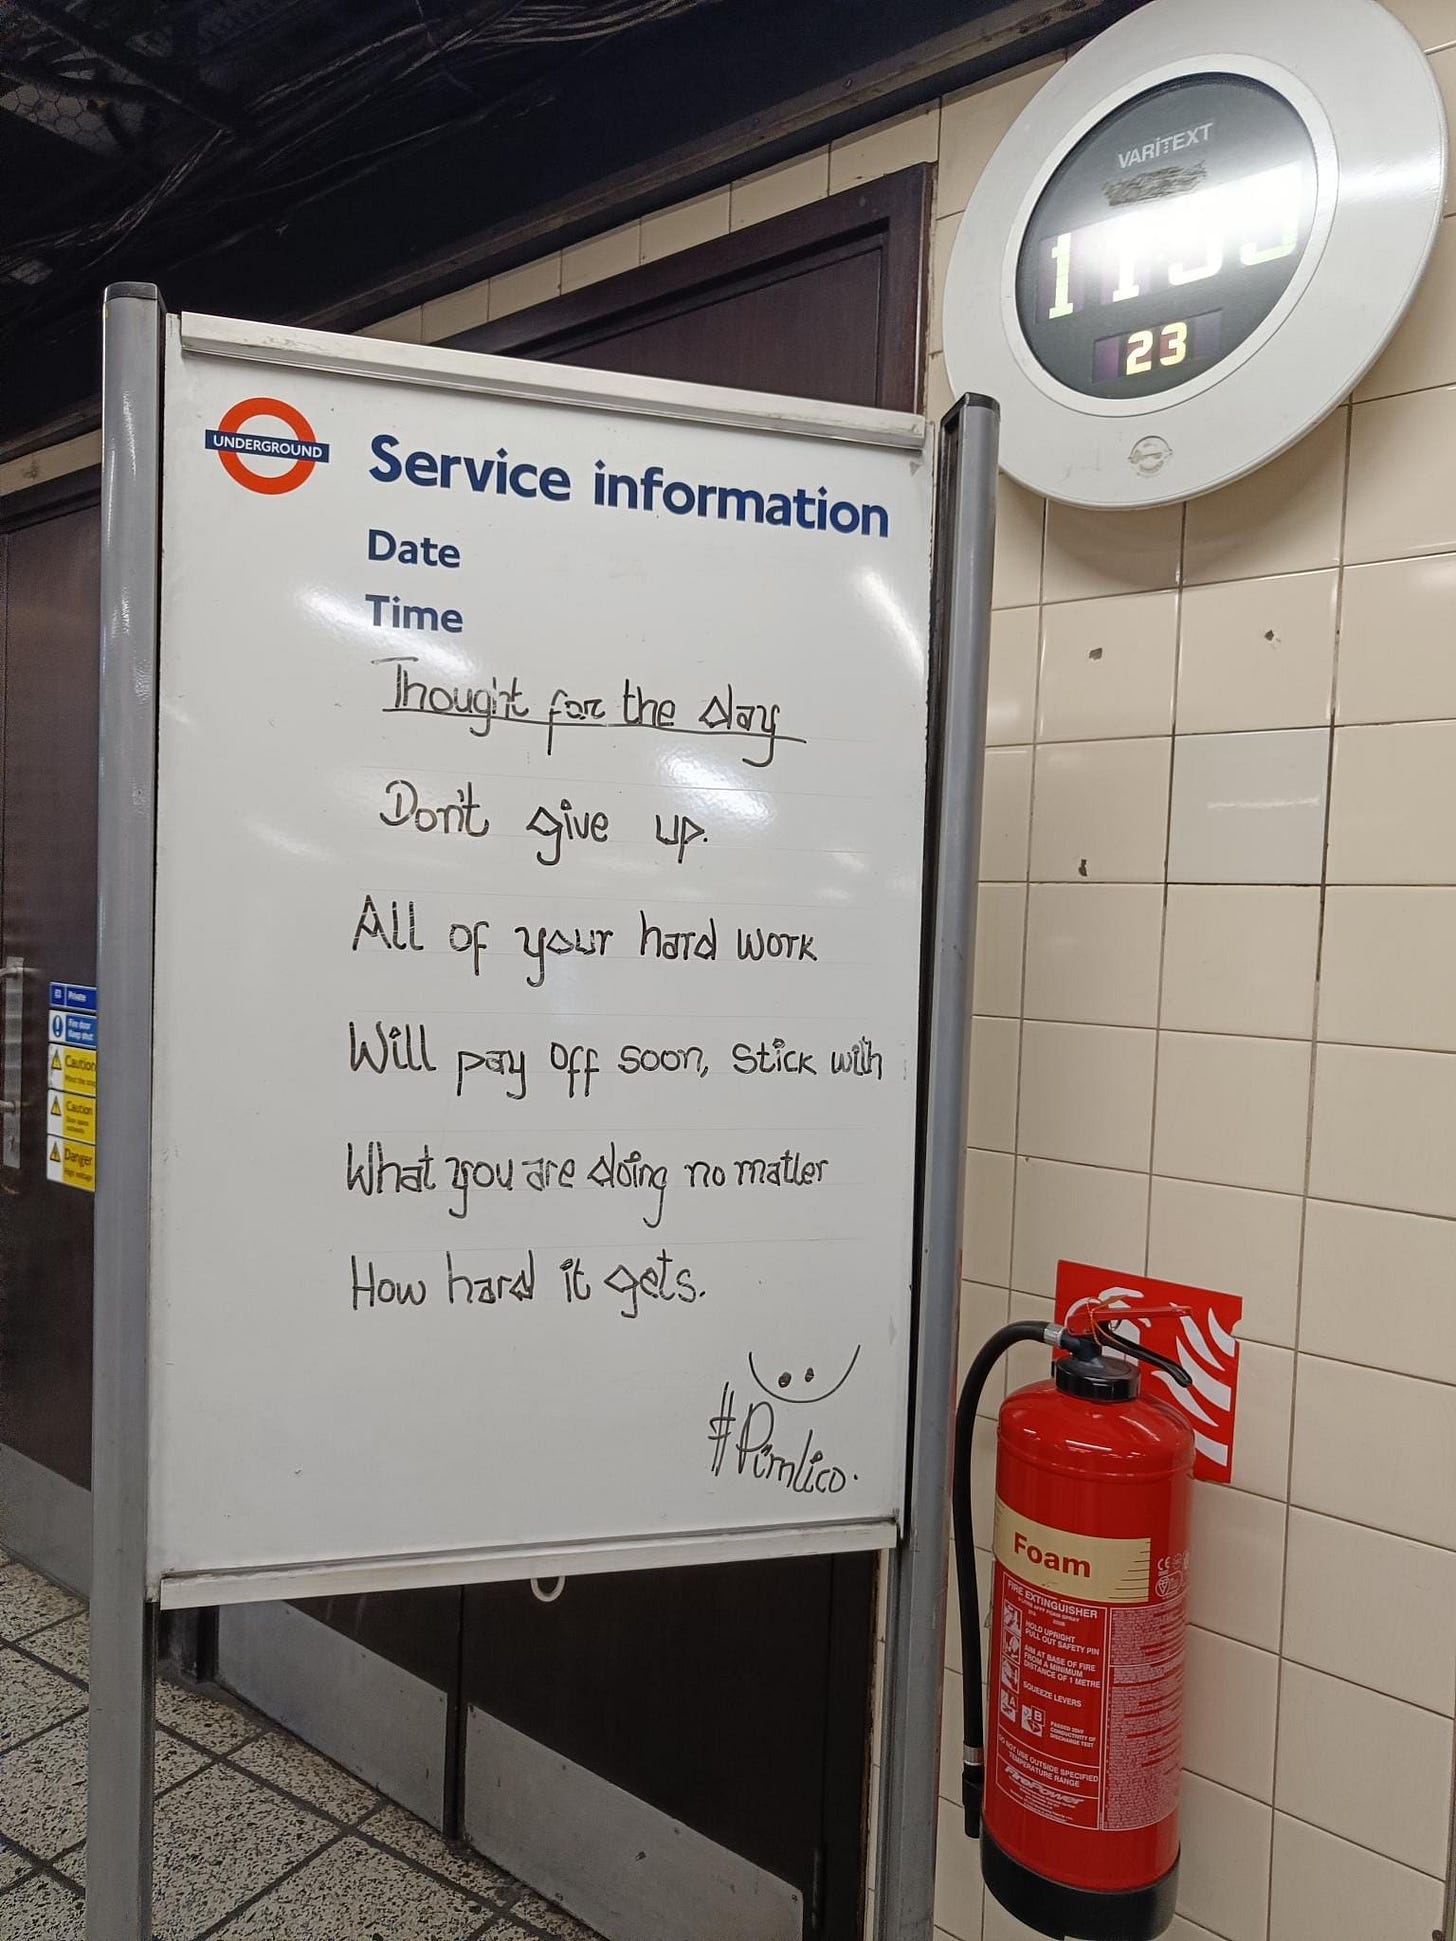 VARITEXT
23
UNDERGROUND
Service information
Date
Time
Thought for the day
Don't give up.
All of your hard work
Will pay off soon, stick with
What you are doing no matter
How hard it gets.
#Pimlico.
Private
Fire door
Keep shut
Caution
Caution
Danger
Foam
FIRE EXTINGUISHER
HOLD UPRIGHT
PULL OUT SAFETY PIN
AIM AT BASE OF FIRE
FROM A MINIMUM
DISTANCE OF 1 METRE
SQUEEZE LEVERS
A
B
DO NOT USE OUTSIDE SPECIFIED
TEMPERATURE RANGE
FirePower